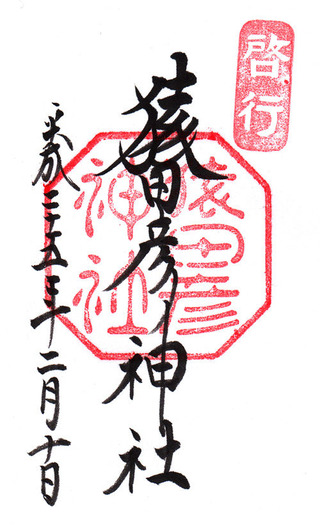 啓行
猿田彦神社
猿田彦
神社
平成二十五年二月十日